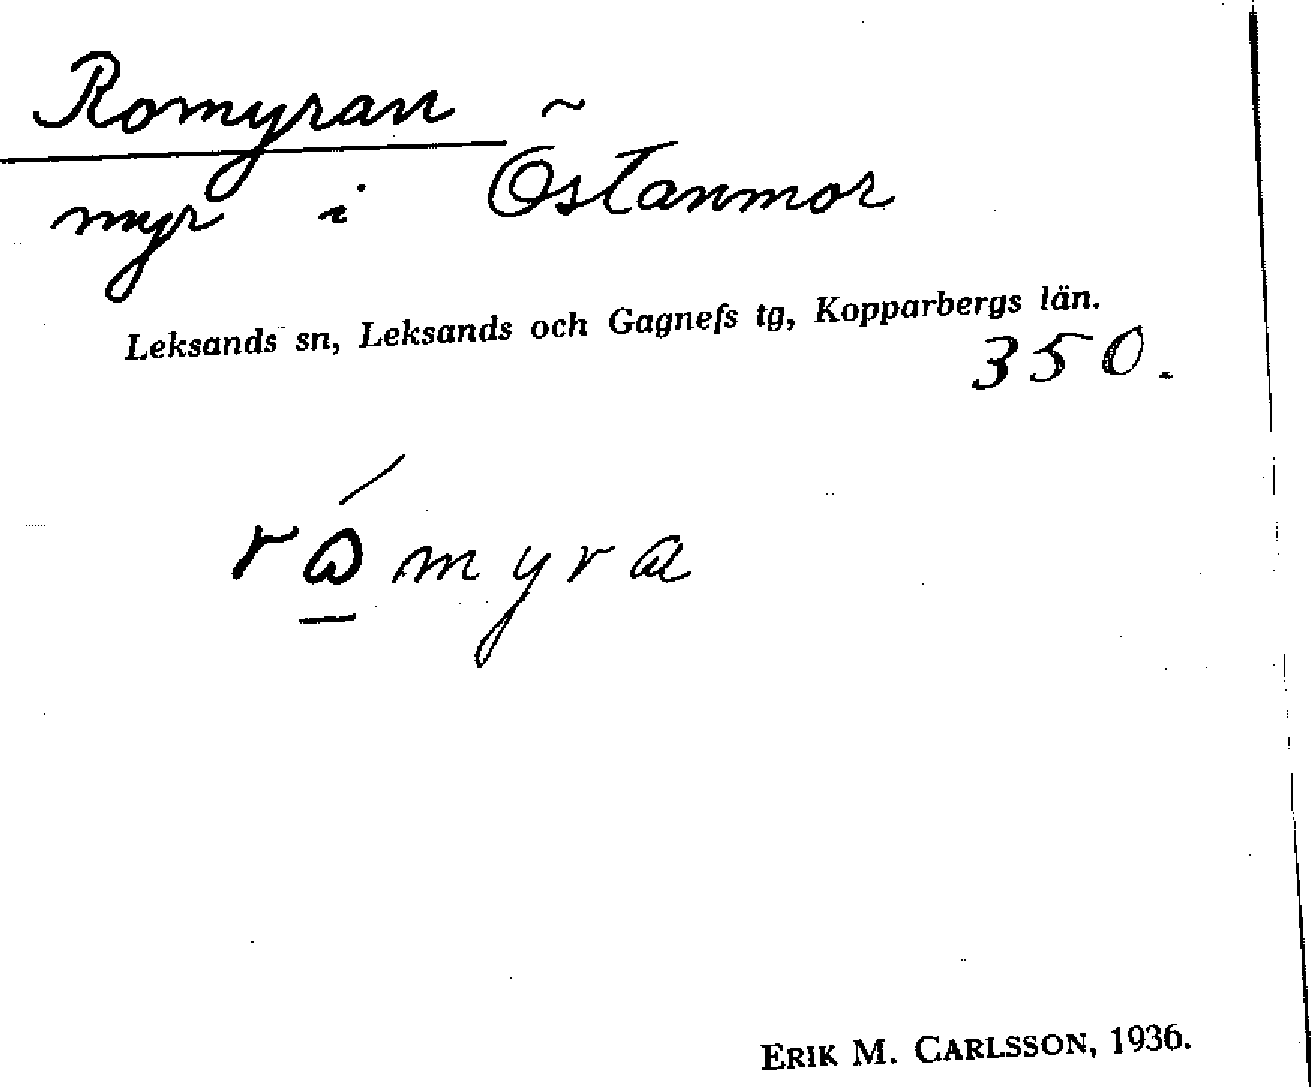 Romyran
myr i Östanmor
Leksands sn, Leksands och Gagnefs tg, Kopparbergs län.
350.
ERIK M. CARLSSON, 1936.